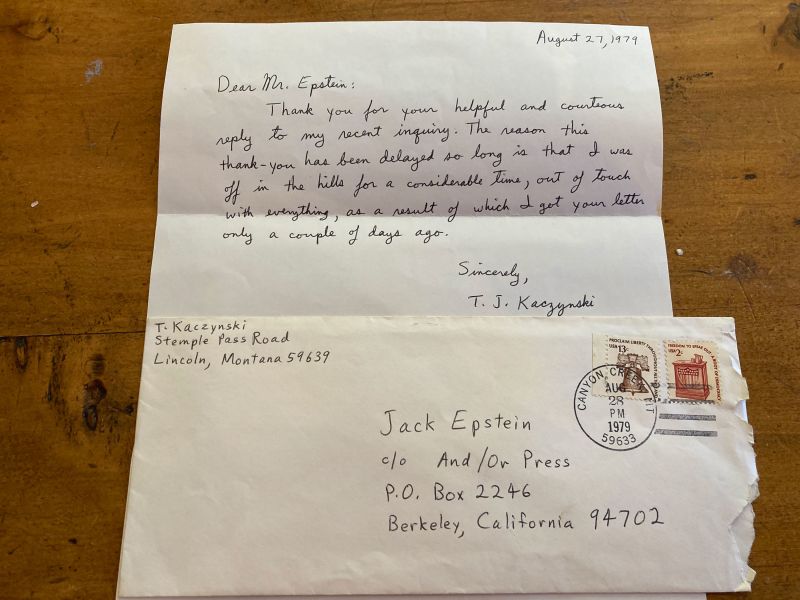 August 27, 1979
Dear Mr. Epstein:
Thank you for your helpful and courteous
reply to my recent inquiry. The reason this
thank-you has been delayed so long is that I was
off in the hills for a considerable time, out of touch
with everything, as a result of which I got your letter
only a couple of days ago.
Sincerely,
T. J. Kaczynski
T. Kaczynski
Stemple Pass Road
Lincoln, Montana 59639
PROCLAIM LIBERTY THROUGHOUT
USA 13c
FREEDOM TO SPEAK OUT
USA 2c
CANYON CREEK MT
AUG
28
PM
1979
59633
Jack Epstein
c/o And/Or Press
P.O. Box 2246
Berkeley, California 94702